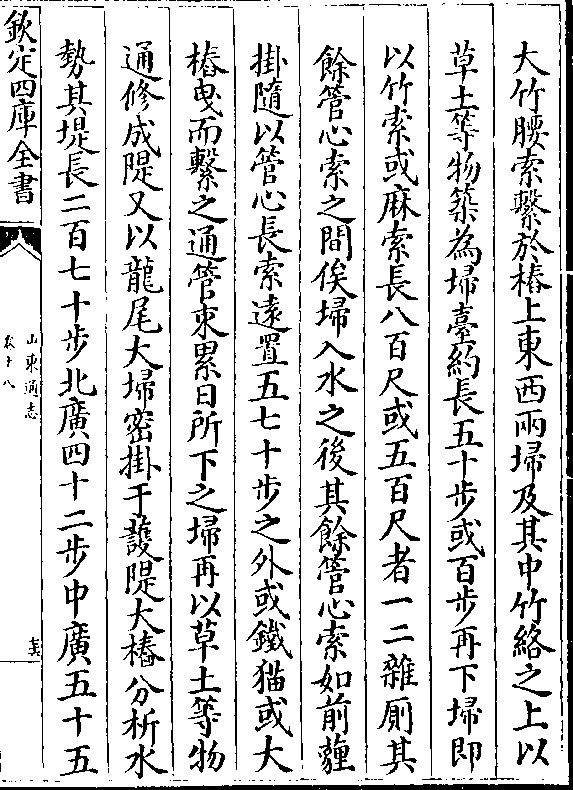 大竹腰索繫於樁上東西兩埽及其中竹絡之上以
草土等物築為埽臺約長五十步或百步再下埽即
以竹索或麻索長八百尺或五百尺者一二雜厠其
餘管心索之間俟埽入水之後其餘管心索如前薶
掛隨以管心長索遠置五七十步之外或鐵猫或大
樁曳而繫之通管束累日所下之埽再以草土等物
通修成隄又以龍尾大埽密掛于護隄大樁分析水
勢其堤長二百七十步北廣四十二步中廣五十五
欽定四庫全書
山東通志
卷十八